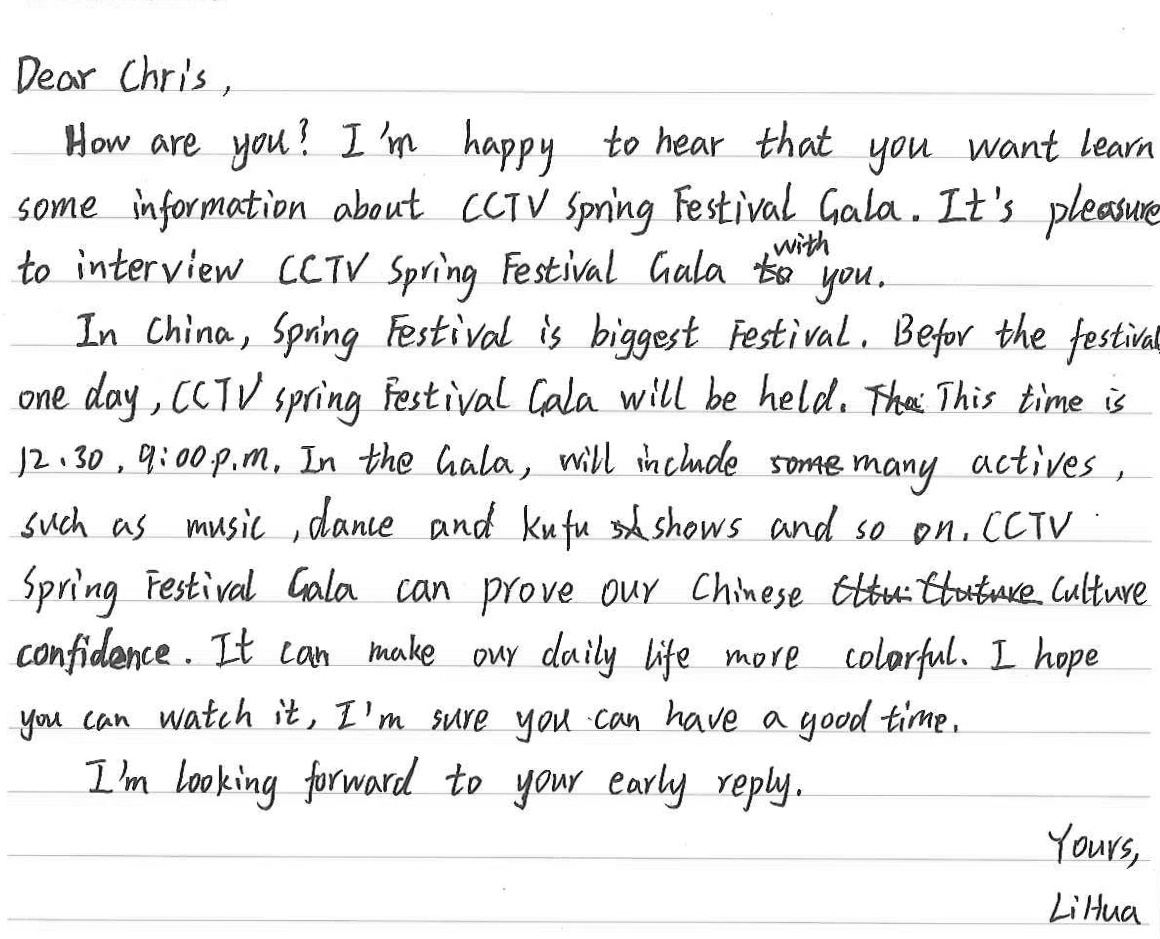 Dear Chris,
How are you? I'm happy to hear that you want learn
some information about CCTV Spring Festival Gala. It's pleasure
to interview CCTV Spring Festival Gala with you.
In China, Spring Festival is biggest Festival. Befor the festival
one day, CCTV spring Festival Gala will be held. This time is
12.30, 9:00p.m. In the Gala, will include many actives,
such as music, dance and kufu shows and so on. CCTV
Spring Festival Gala can prove our Chinese Culture
confidence. It can make our daily life more colorful. I hope
you can watch it, I'm sure you can have a good time.
I'm looking forward to your early reply.
Yours,
Li Hua